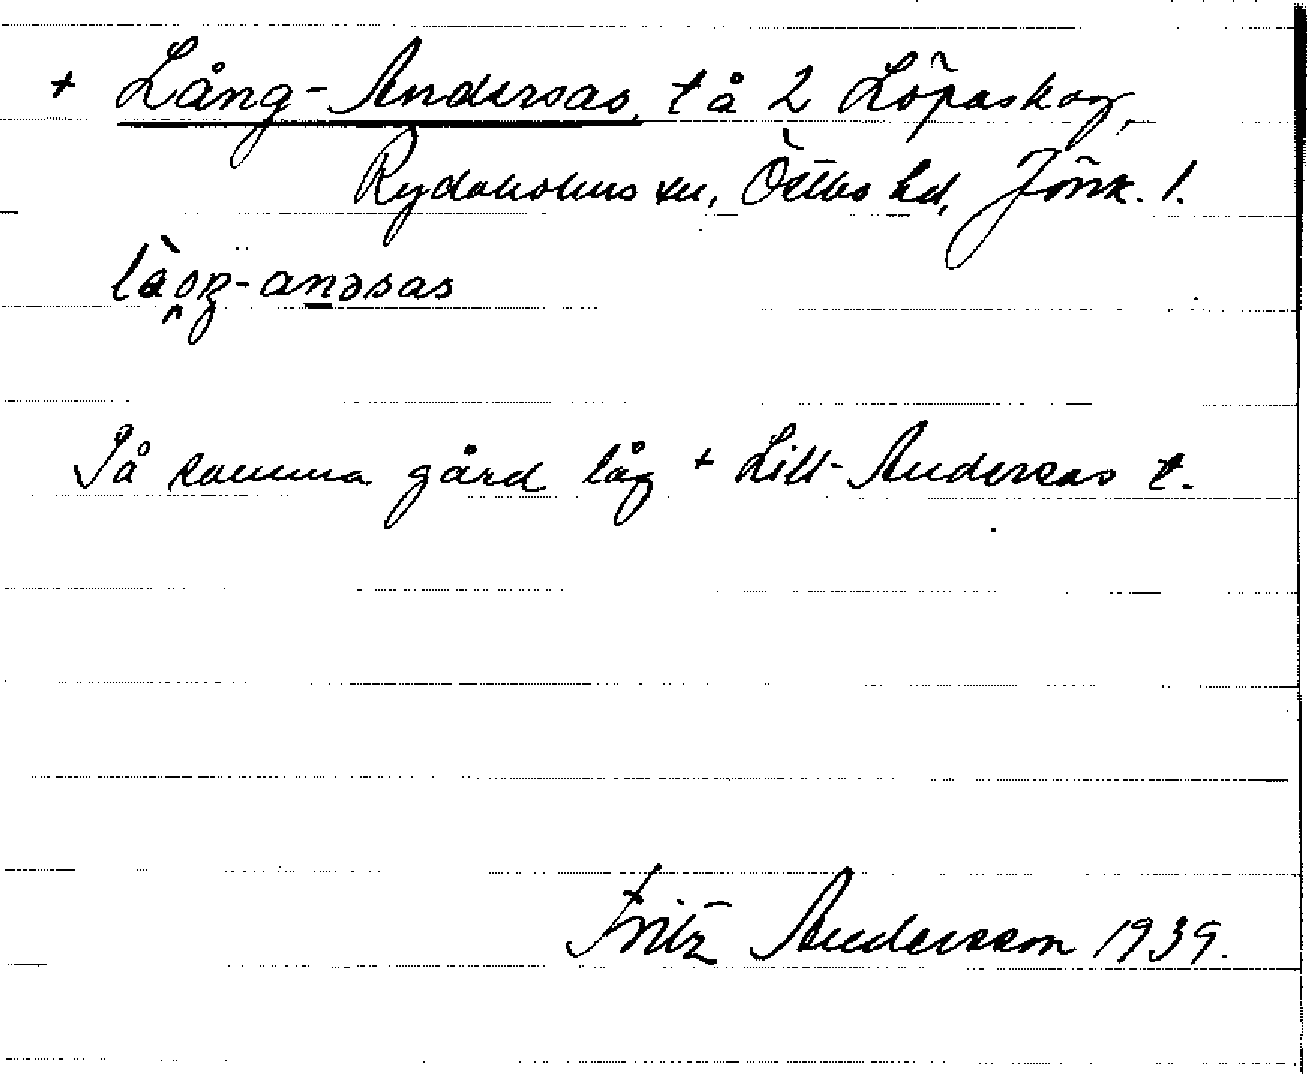 + Lång-Andersas, t å 2 Löpaskog,
Rydaholms sn, Östbo hd, Jönk. l.
På samma gård låg + Lill-Andersas t.
Fritz Andersson 1939.